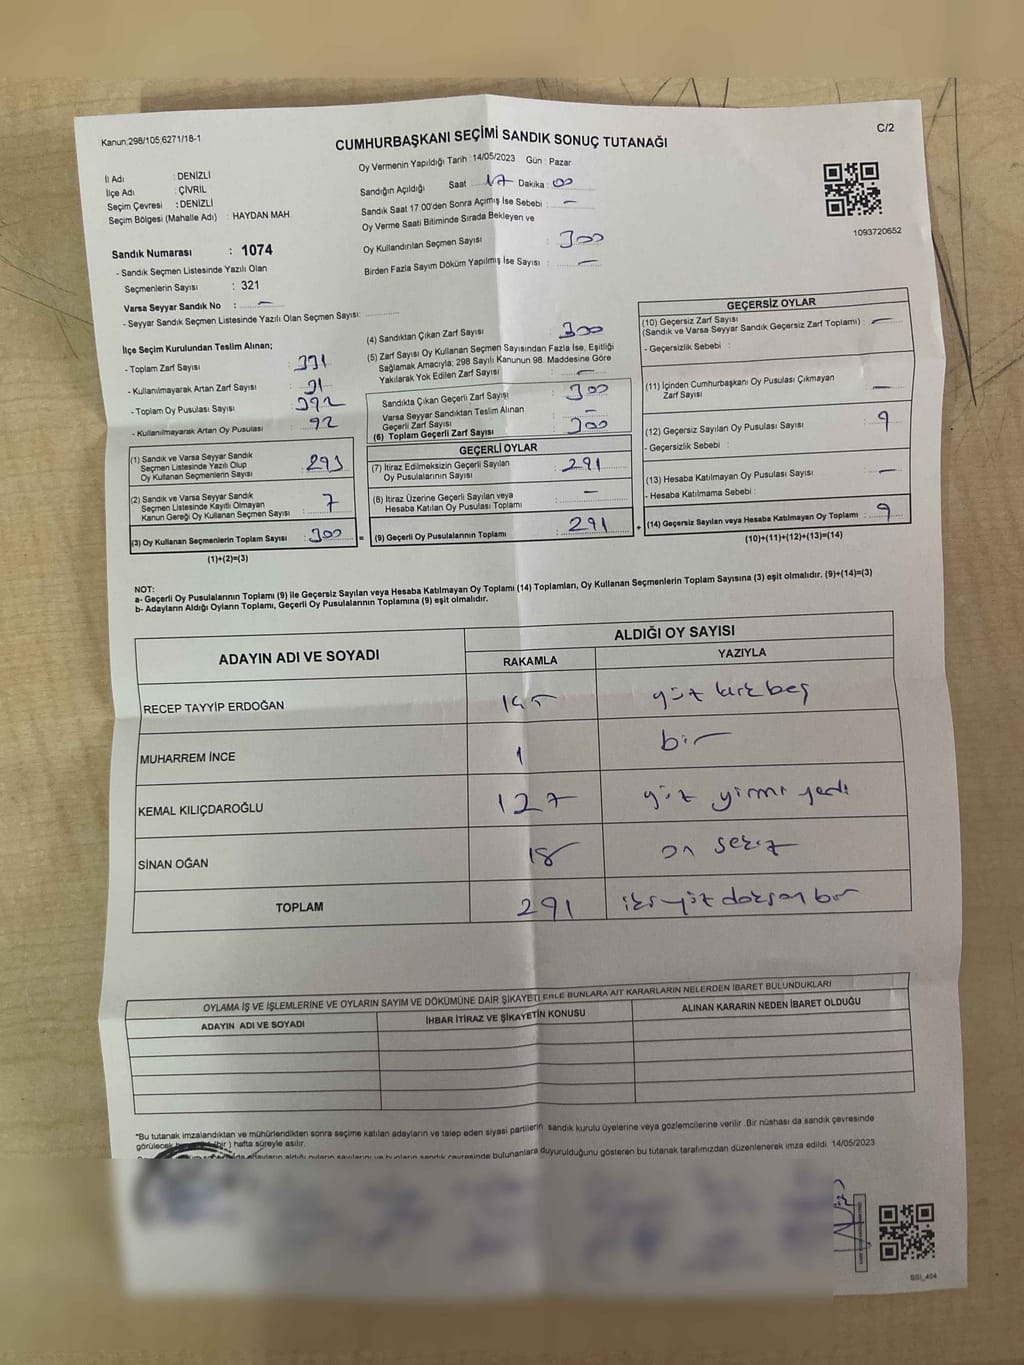 Kanun;298/105,6271/18-1
C/2
CUMHURBAŞKANI SEÇİMİ SANDIK SONUÇ TUTANAĞI
Oy Vermenin Yapıldığı Tarih : 14/05/2023 Gün : Pazar
İl Adı : DENİZLİ
İlçe Adı : ÇİVRİL
Seçim Çevresi : DENİZLİ
Seçim Bölgesi (Mahalle Adı) : HAYDAN MAH.
Sandığın Açıldığı Saat : 17 Dakika : 00
Sandık Saat 17:00'den Sonra Açımış İse Sebebi : —
Oy Verme Saati Bitiminde Sırada Bekleyen ve
Oy Kullandırılan Seçmen Sayısı : 300
Birden Fazla Sayım Döküm Yapılmış İse Sayısı : —
1093720652
Sandık Numarası : 1074
- Sandık Seçmen Listesinde Yazılı Olan
Seçmenlerin Sayısı : 321
Varsa Seyyar Sandık No : —
- Seyyar Sandık Seçmen Listesinde Yazılı Olan Seçmen Sayısı:
İlçe Seçim Kurulundan Teslim Alınan;
- Toplam Zarf Sayısı : 331
- Kullanılmayarak Artan Zarf Sayısı : 31
- Toplam Oy Pusulası Sayısı : 392
- Kullanılmayarak Artan Oy Pusulası : 92
(1) Sandık ve Varsa Seyyar Sandık
Seçmen Listesinde Yazılı Olup
Oy Kullanan Seçmenlerin Sayısı : 293
(2) Sandık ve Varsa Seyyar Sandık
Seçmen Listesinde Kayıtlı Olmayan
Kanun Gereği Oy Kullanan Seçmen Sayısı : 7
(3) Oy Kullanan Seçmenlerin Toplam Sayısı : 300
(1)+(2)=(3)
(4) Sandıktan Çıkan Zarf Sayısı : 300
(5) Zarf Sayısı Oy Kullanan Seçmen Sayısından Fazla İse, Eşitliği
Sağlamak Amacıyla; 298 Sayılı Kanunun 98. Maddesine Göre
Yakılarak Yok Edilen Zarf Sayısı : —
Sandıkta Çıkan Geçerli Zarf Sayısı : 300
Varsa Seyyar Sandıktan Teslim Alınan
Geçerli Zarf Sayısı : —
(6) Toplam Geçerli Zarf Sayısı : 300
GEÇERLİ OYLAR
(7) İtiraz Edilmeksizin Geçerli Sayılan
Oy Pusulalarının Sayısı : 291
(8) İtiraz Üzerine Geçerli Sayılan veya
Hesaba Katılan Oy Pusulası Toplamı : —
= (9) Geçerli Oy Pusulalarının Toplamı : 291 +
GEÇERSİZ OYLAR
(10) Geçersiz Zarf Sayısı
(Sandık ve Varsa Seyyar Sandık Geçersiz Zarf Toplamı) : —
- Geçersizlik Sebebi :
(11) İçinden Cumhurbaşkanı Oy Pusulası Çıkmayan
Zarf Sayısı : —
(12) Geçersiz Sayılan Oy Pusulası Sayısı : 9
- Geçersizlik Sebebi :
(13) Hesaba Katılmayan Oy Pusulası Sayısı : —
- Hesaba Katılmama Sebebi :
(14) Geçersiz Sayılan veya Hesaba Katılmayan Oy Toplamı : 9
(10)+(11)+(12)+(13)=(14)
NOT:
a- Geçerli Oy Pusulalarının Toplamı (9) ile Geçersiz Sayılan veya Hesaba Katılmayan Oy Toplamı (14) Toplamları, Oy Kullanan Seçmenlerin Toplam Sayısına (3) eşit olmalıdır. (9)+(14)=(3)
b- Adayların Aldığı Oyların Toplamı, Geçerli Oy Pusulalarının Toplamına (9) eşit olmalıdır.
ADAYIN ADI VE SOYADI ALDIĞI OY SAYISI
RAKAMLA YAZIYLA
RECEP TAYYİP ERDOĞAN 145 yüz kırk beş
MUHARREM İNCE 1 bir
KEMAL KILIÇDAROĞLU 127 yüz yirmi yedi
SİNAN OĞAN 18 on sekiz
TOPLAM 291 iki yüz doksan bir
OYLAMA İŞ VE İŞLEMLERİNE VE OYLARIN SAYIM VE DÖKÜMÜNE DAİR ŞİKAYETLERLE BUNLARA AİT KARARLARIN NELERDEN İBARET BULUNDUKLARI
ADAYIN ADI VE SOYADI İHBAR İTİRAZ VE ŞİKAYETİN KONUSU ALINAN KARARIN NEDEN İBARET OLDUĞU
*Bu tutanak imzalandıktan ve mühürlendikten sonra seçime katılan adayların ve talep eden siyasi partilerin sandık kurulu üyelerine veya gözlemcilerine verilir. Bir nüshası da sandık çevresinde
görülecek hafta süreyle asılır.
adayların aldığı oyların sayılarını ve bunların sandık çevresinde bulunanlara duyurulduğunu gösteren bu tutanak tarafımızdan düzenlenerek imza edildi. 14/05/2023